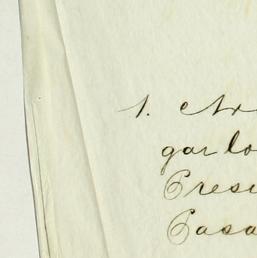 1. Ar
gar lo
Presi
Casa